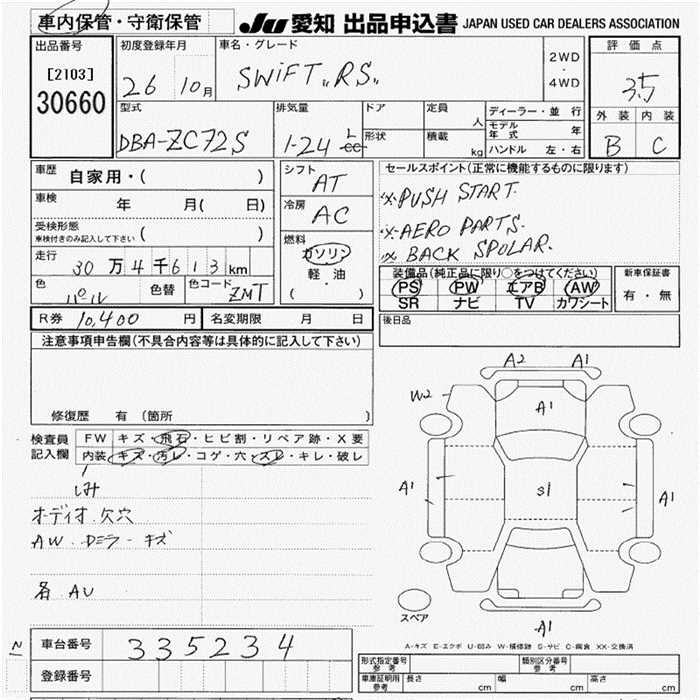 車内保管・守衛保管 JU 愛知 出品申込書 JAPAN USED CAR DEALERS ASSOCIATION
出品番号 初度登録年月 車名・グレード 2WD・4WD 評価点
[2103] 26 10月 SWiFT "RS" 3.5
30660
型式 排気量 ドア 定員 人 ディーラー・並行 外装 内装
モデル年式 年
DBA-ZC72S 1-24 L cc 形状 積載 kg ハンドル 左・右 B C
車歴 自家用・( ) シフト AT セールスポイント(正常に機能するものに限ります)
車検 年 月( 日) 冷房 AC ※PUSH START.
受検形態 車検付きのみ記入して下さい ( ) 燃料 ガソリン ※AERO PARTS.
※ BACK SPOLAR.
走行 30万4千613km 軽油 装備品(純正品に限り○をつけてください) 新車保証書
色 色替 色コード ZMT ( ) PS PW エアB AW 有・無
SR ナビ TV カワシート
R券 10,400 円 名変期限 月 日 後日品
注意事項申告欄(不具合内容等は具体的に記入して下さい)
修復歴 有(箇所 )
A2 A1
W2 A1
検査員 FW キズ・飛石・ヒビ割・リペア跡・X要
記入欄 内装 キズ・汚レ・コゲ・穴・スレ・キレ・破レ
シミ
A1 S1 A1
オーディオ欠穴
AW.Dミラーキズ
各 AU
スペア
A1
A-キズ E-エクボ U-凹み W-補修跡 S-サビ C-腐食 XX-交換済
N 車台番号 335234
登録番号
形式指定番号 参考 類別区分番号 参考
車庫証明用 参考 長さ cm 幅 cm 高さ cm